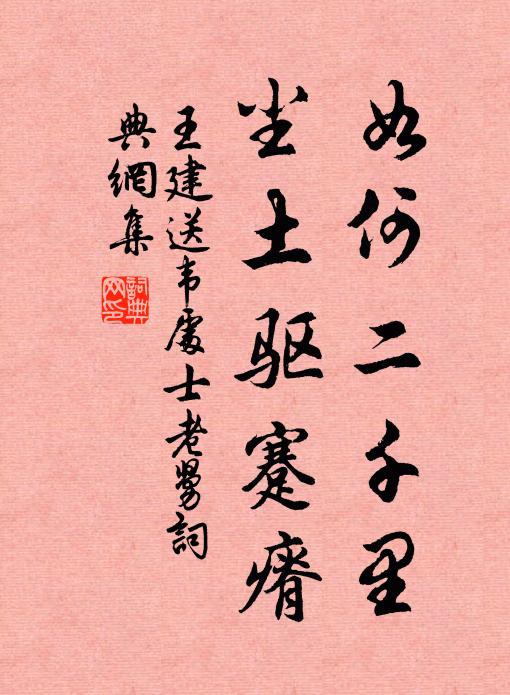 如何二千里
尘土驱蹇瘠
王建送韦處士老舅詞
典網集
詞典
网印